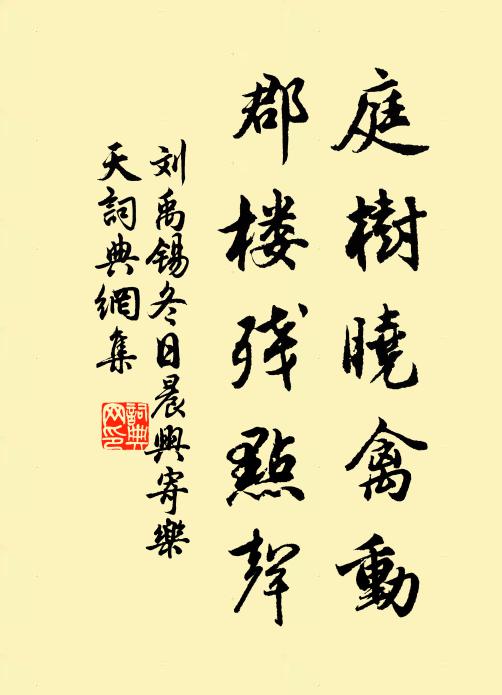 庭樹曉禽動
郡楼残點聲
刘禹锡冬日晨興寄樂
天詞典網集
詞典
网印